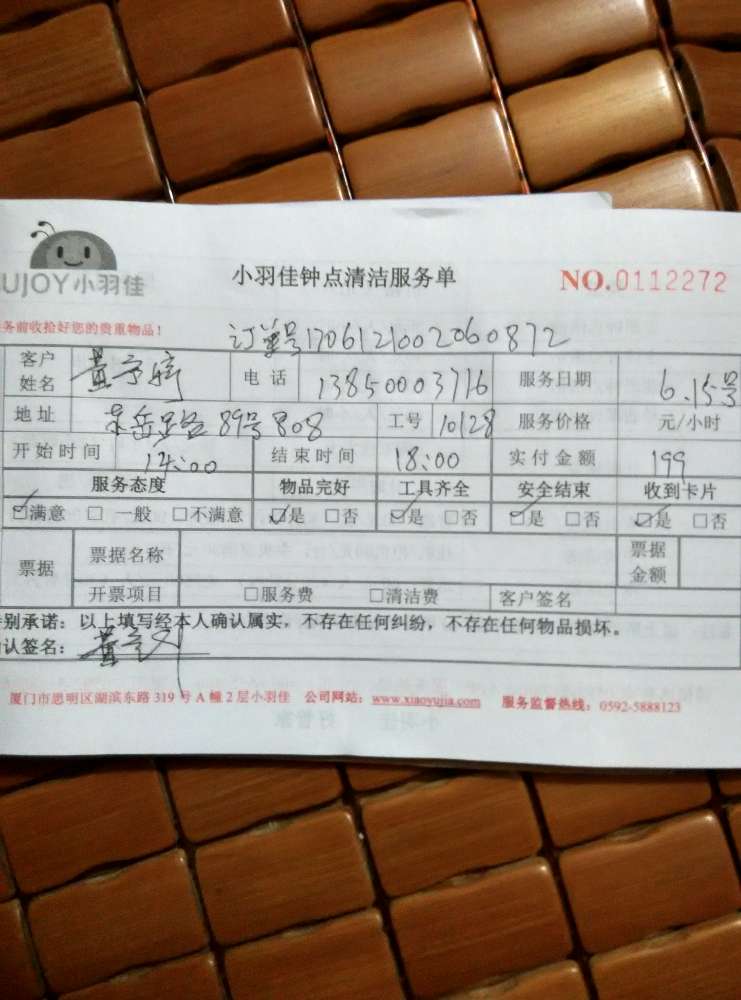 UJOY小羽佳
小羽佳钟点清洁服务单
NO.0112272
务前收拾好您的贵重物品!
订单号1706121002060872
客户姓名 黄 电话 13850003716 服务日期 6.15号
地址 89号808 工号 10128 服务价格 元/小时
开始时间 14:00 结束时间 18:00 实付金额 199
服务态度 物品完好 工具齐全 安全结束 收到卡片
☑满意 □一般 □不满意 ☑是 □否 ☑是 □否 ☑是 □否 ☑是 □否
票据 票据名称 票据金额
开票项目 □服务费 □清洁费 客户签名
别承诺:以上填写经本人确认属实,不存在任何纠纷,不存在任何物品损坏。
认签名:黄
厦门市思明区湖滨东路 319 号 A 幢 2 层小羽佳 公司网站:www.xiaoyujia.com 服务监督热线:0592-5888123